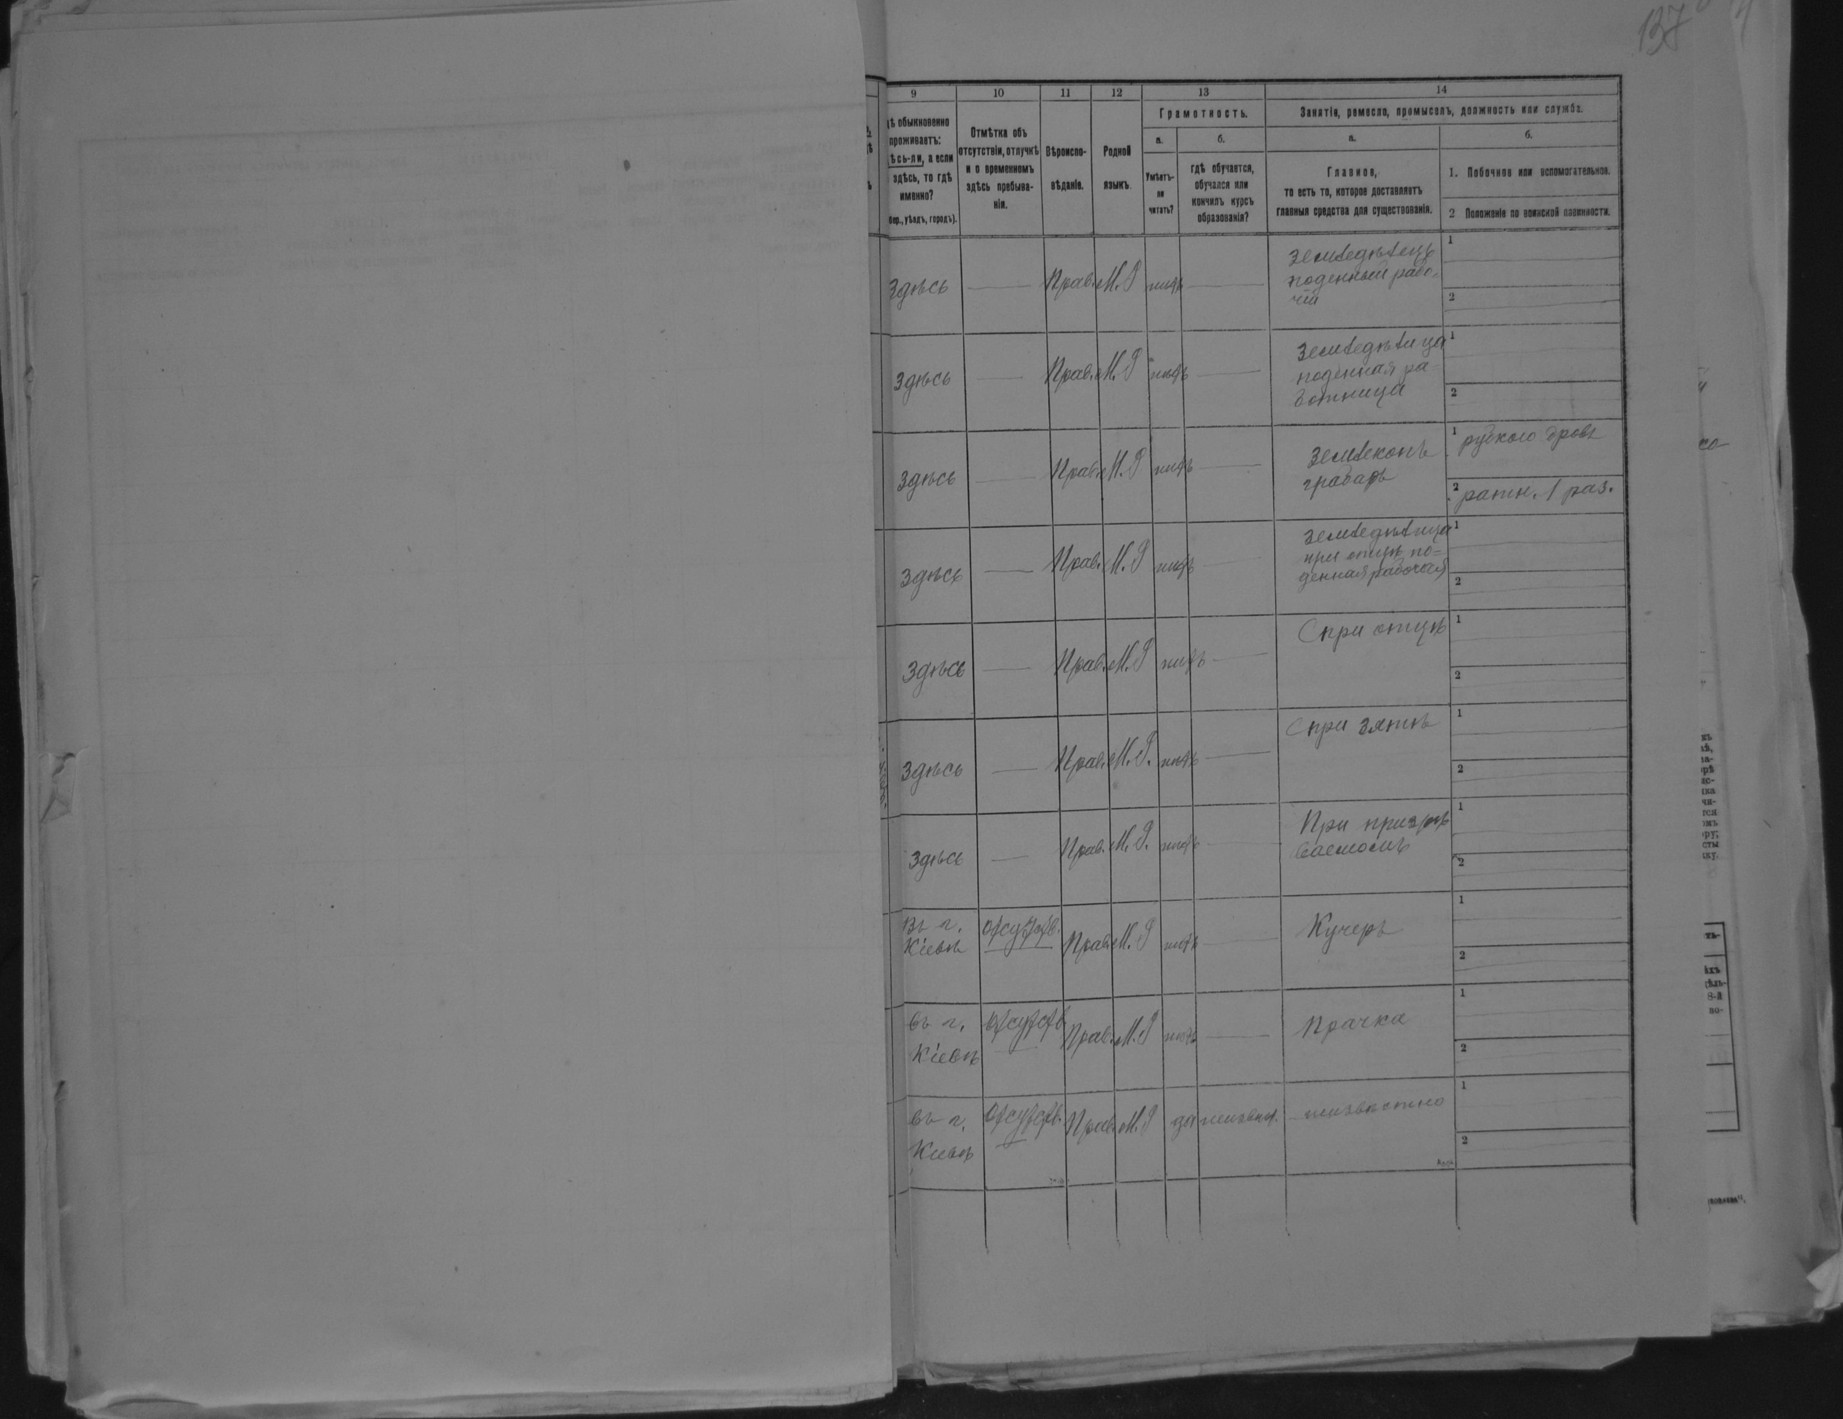 137
9 10 11 12 13 14
Грамотность. Занятіе, ремесло, промыселъ, должность или служба.
а. б. а. б.
обыкновенно
проживаетъ:
а если
здѣсь, то гдѣ
именно?
уѣздъ, городъ).
Отмѣтка объ
отсутствіи, отлучкѣ
и о временномъ
здѣсь пребыва-
ніи.
Вѣроиспо-
вѣданіе.
Родной
языкъ.
Умѣетъ-
ли
читать?
гдѣ обучается,
обучался или
кончилъ курсъ
образованія?
Главное,
то есть то, которое доставляетъ
главныя средства для существованія.
1. Побочное или вспомогательное.
2 Положеніе по воинской повинности.
Здѣсь — Прав. М. Р нѣтъ —
земледѣлецъ
поденный рабо-
чій
1
2
здѣсь — Прав. М. Р нѣтъ —
земледѣлица
поденная ра-
ботница
1
2
здѣсь — Прав. М. Р нѣтъ —
землекопъ
грабарь
1 дровъ
2 ратн. 1 раз.
здѣсь — Прав. М. Р нѣтъ —
земледѣлица
при отцѣ по=
денная
1
2
здѣсь — Прав. М. Р нѣтъ —
при отцѣ
1
2
здѣсь — Прав. М. Р. нѣтъ —
при зятѣ
1
2
здѣсь — Прав. М. Р. нѣтъ —
При
1
2
въ г.
Кіевѣ
отсутств.
Прав. М. Р нѣтъ —
Кучеръ
1
2
въ г.
Кіевѣ
отсутств
Прав. М. Р нѣтъ —
Прачка
1
2
въ г.
Кіевѣ
отсутств.
Прав. М. Р да неизвѣст. неизвѣстно
1
2